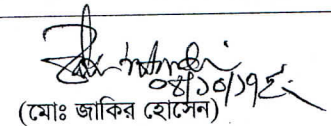 ০৪/১০/১৭ইং
(মোঃ জাকির হোসেন)